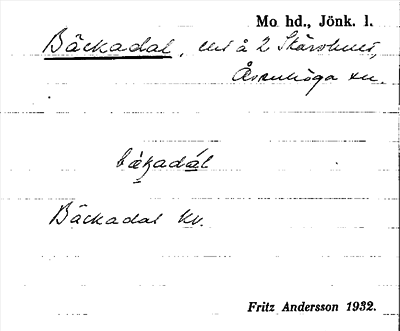 Mo hd., Jönk. l.
Bäckadal, å 2 Stärshult,
Åsenhöga sn.
bäkadál
Bäckadal kv.
Fritz Andersson 1932.